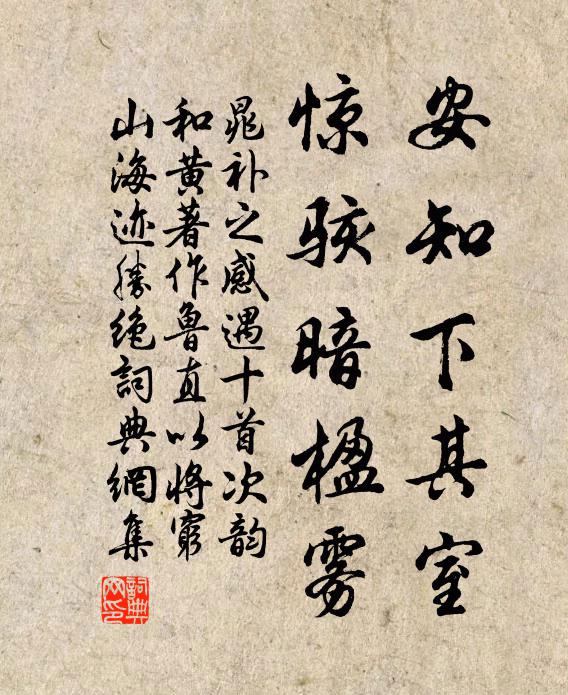 安知下其室
惊骇暗楹雾
晁补之感遇十首次韵
和黄著作鲁直以将穷
山海迹胜绝词典網集
詞典网印